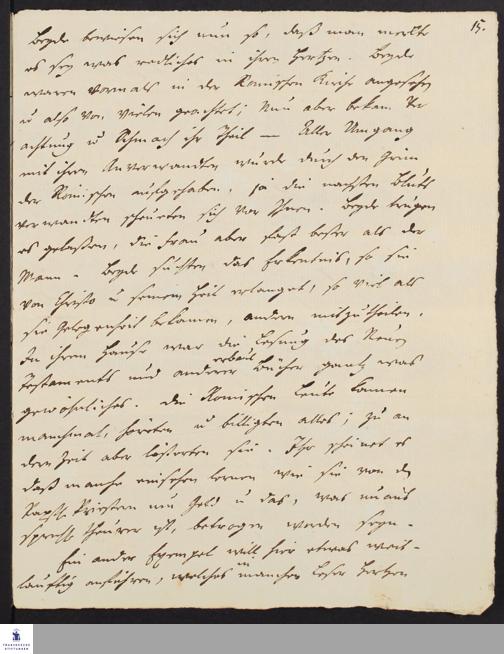 15.
Beyde bewiesen sich nun so, daß man merkte
es sey was redliches in ihren Hertzen. Beyde
waren vormals in der Romischen Kirche angesehen
u also von vielen geachtet; Nun aber bekam Ver
achtung u Schmach ihr Theil — Aller Umgang
mit ihren Anverwandten wurde durch den Grim
der Romischen aufgehaben, ja die nachsten Bluts
verwandten scheueten sich vor Ihnen. Beyde trugen
es gelassen, die Frau aber fast besser als der
Mann. Beyde suchten das Erkentnis, so sie
von Christo u seinem Heil erlanget, so viel als
sie Gelegenheit bekamen, andern mitzutheilen.
In ihrem Hause war die Lesung des Neuen
Testaments und anderer erbaul Bücher gantz was
gewöhnliches. Die Romischen Leute kamen
manchmal, höreten u billigten alles; zu an
dern Zeit aber lästerten sie. Ihr scheinet es
daß manche einsehen lernen wie sie von den
Priestern um Geld u das, was unaus
sprechl theurer ist, betrogen worden seyn.
Ein ander Exempel will hier etwas weit-
läuftig anführen, welches in manchen Leser Hertzen
FRANCKESCHE
STIFTUNGEN